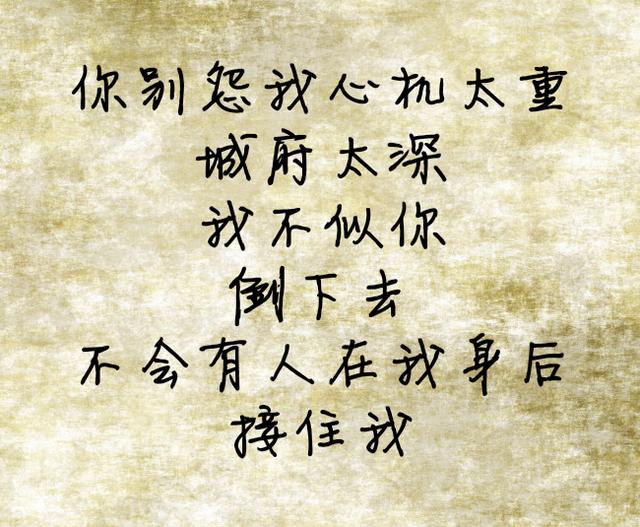 你别怨我心机太重
城府太深
我不似你
倒下去
不会有人在我身后
接住我